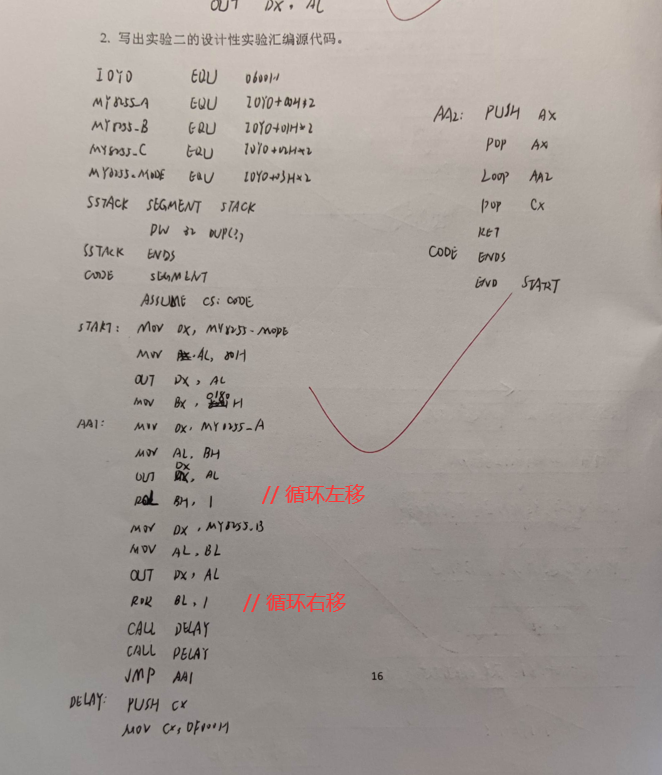 OUT DX, AL
2. 写出实验二的设计性实验汇编源代码。
IOY0 EQU 0600H
MY8255_A EQU IOY0+00H*2
MY8255_B EQU IOY0+01H*2
MY8255_C EQU IOY0+02H*2
MY8255_MODE EQU IOY0+03H*2
SSTACK SEGMENT STACK
DW 32 DUP(?)
SSTACK ENDS
CODE SEGMENT
ASSUME CS: CODE
START: MOV DX, MY8255_MODE
MOV AL, 80H
OUT DX, AL
MOV BX, 0180H
AA1: MOV DX, MY8255_A
MOV AL, BH
OUT DX, AL
ROL BH, 1 // 循环左移
MOV DX, MY8255_B
MOV AL, BL
OUT DX, AL
ROR BL, 1 // 循环右移
CALL DELAY
CALL DELAY
JMP AA1
DELAY: PUSH CX
MOV CX, 0F000H
AA2: PUSH AX
POP AX
LOOP AA2
POP CX
RET
CODE ENDS
END START
16